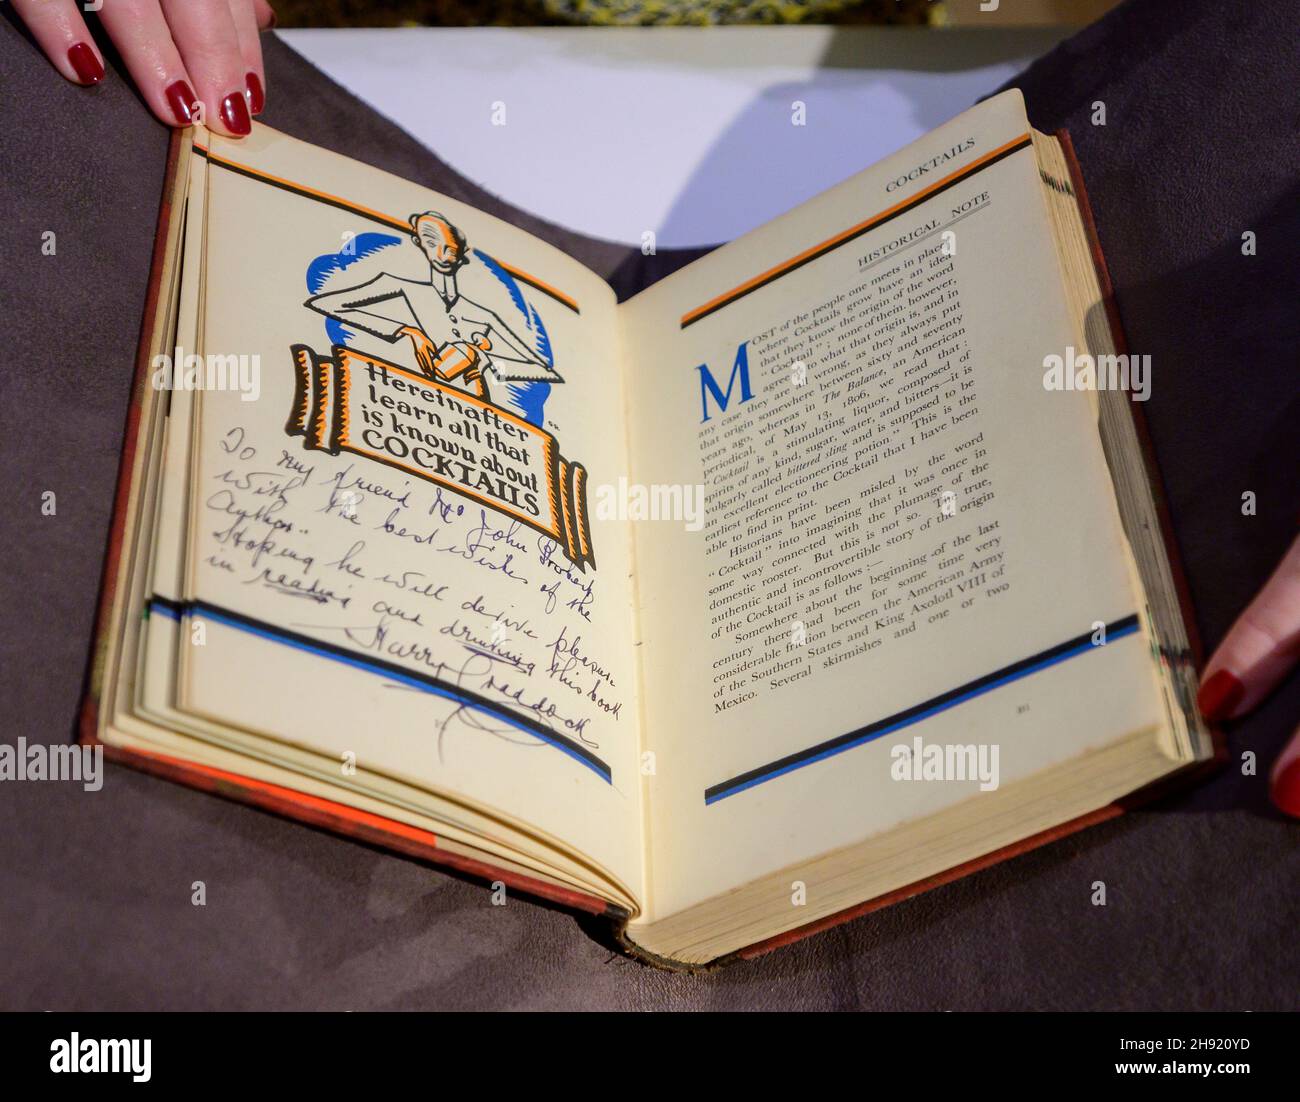 Hereinafter
learn all that
is known about
COCKTAILS
To my friend Mr John
with the best wishes of the
author.
Hoping he will derive pleasure
in reading and drinking this book
Harry Craddock
COCKTAILS
HISTORICAL NOTE
MOST of the people one meets in places
where Cocktails grow have an idea
that they know the origin of the word
"Cocktail"; none of them, however,
agree as to what that origin is, and in
any case they are all wrong, as they always put
that origin somewhere between sixty and seventy
years ago, whereas in The Balance, an American
periodical, of May 13, 1806, we read that:
"Cocktail is a stimulating liquor, composed of
spirits of any kind, sugar, water, and bitters—it is
vulgarly called bittered sling and is supposed to be
an excellent electioneering potion." This is the
earliest reference to the Cocktail that I have been
able to find in print.
Historians have been misled by the word
"Cocktail" into imagining that it was once in
some way connected with the plumage of the
domestic rooster. But this is not so. The true,
authentic and incontrovertible story of the origin
of the Cocktail is as follows:—
Somewhere about the beginning of the last
century there had been for some time very
considerable friction between the American Army
of the Southern States and King Axolotl VIII of
Mexico. Several skirmishes and one or two
alamy
Image ID: 2H920YD
www.alamy.com